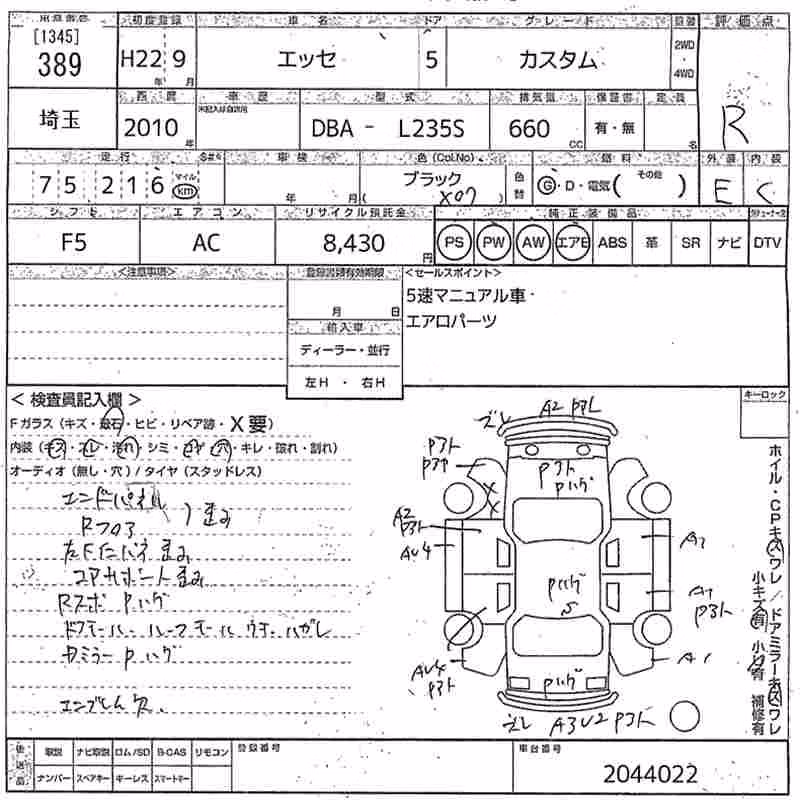 初度登録 車名 ドア グレード 評価点
[1345]
389 H22 9 エッセ 5 カスタム 2WD
年 月 4WD
R
車歴 型式 排気量 保証書 定員
埼玉 2010 年 DBA - L235S 660 CC 有・無 名
走行 車検 色(Col.No) 燃料 外装 内装
75,216 マイル km 年 月 ブラック ( X07 ) 色替 G・D・電気( その他 ) E C
シフト エアコン リサイクル預託金 純正装備品
F5 AC 8,430 円 PS PW AW エアB ABS 革 SR ナビ DTV
<注意事項> <セールスポイント>
月 日 5速マニュアル車・
輸入車 エアロパーツ
ディーラー・並行
左H・右H
キーロック
<検査員記入欄>
Fガラス(キズ・飛石・ヒビ・リペア跡・X要)
内装(キズ・スレ・汚れ・シミ・コゲ・穴・キレ・破れ・割れ)
オーディオ(無し・穴)/タイヤ(スタッドレス)
エンドパネル
Rフロア ) 歪み
コアサポート歪み
Rスポ Pハゲ
ドアモール・ルーフモール
ドアミラーPハゲ
エンブレム欠
ズレ A2 Pアト
Pアト
Pアト
Pアト
Pハゲ
A2
Pアト
AU4
A2
Pハゲ
A1
Pアト
AU4
Pアト
A1
Pハゲ
ズレ A3 U2 Pアト
ホイル・CPキズワレ/ドアミラーキズワレ
小キズ有 小凹有 補修有
後送品 取説 ナビ取説 ロム/SD B-CAS リモコン 登録番号 車台番号
ナンバー スペアキー キーレス スマートキー 2044022